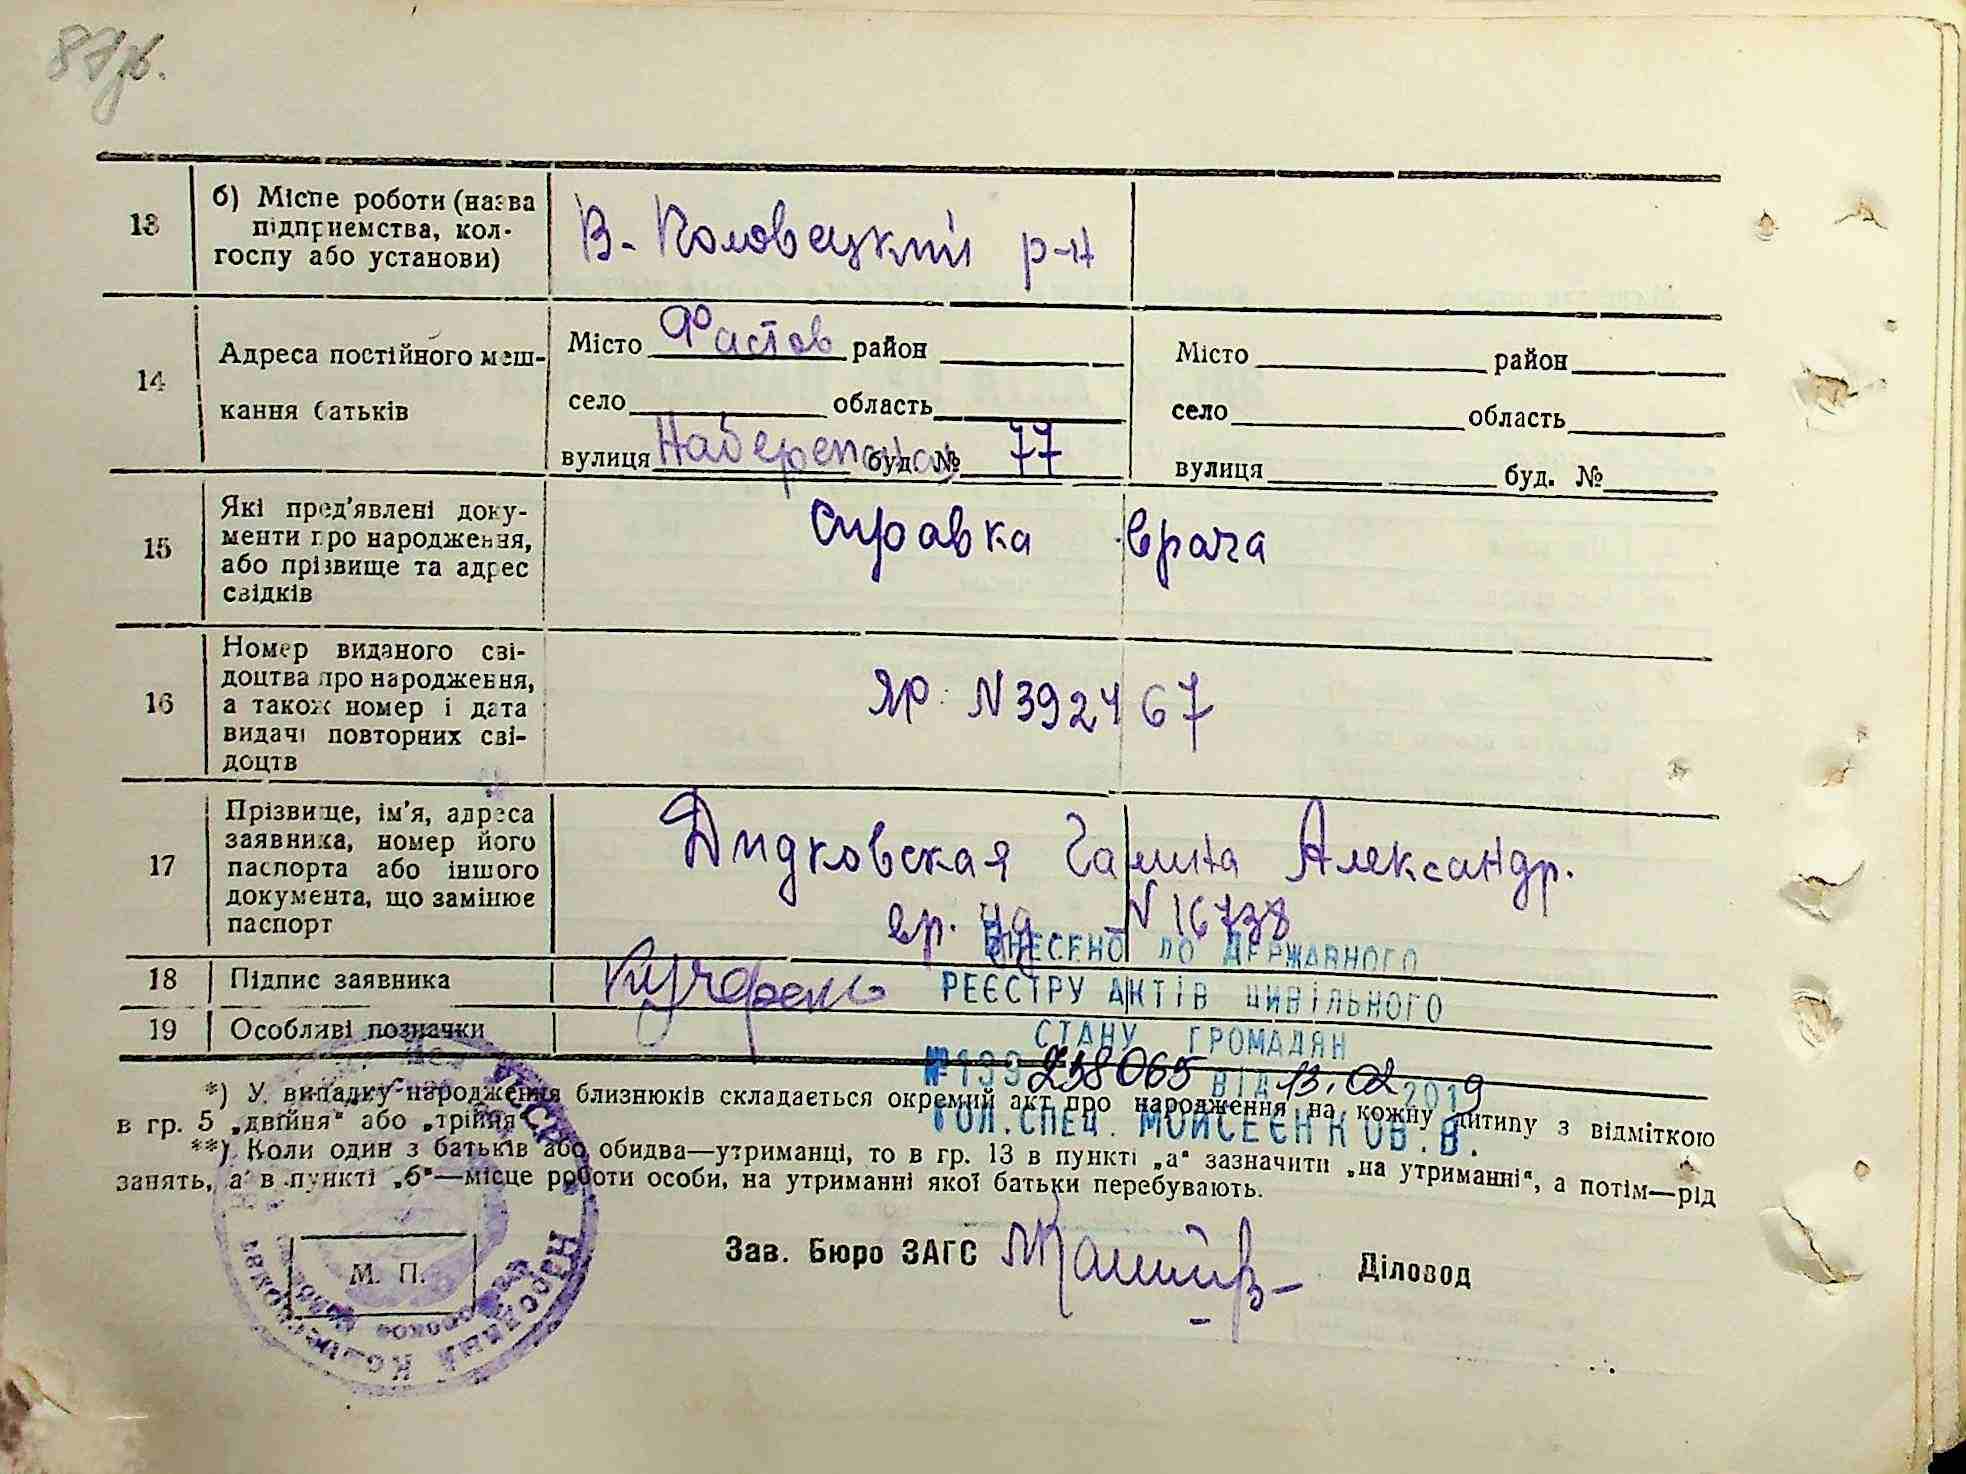 13
б) Місце роботи (назва
підприємства, кол-
госпу або установи)
В-Половецкий р-н
14
Адреса постійного меш-
кання батьків
Місто Фастов район
село область
вулиця Набережная буд. № 77
Місто район
село область
вулиця буд. №
15
Які пред'явлені доку-
менти про народження,
або прізвище та адрес
свідків
справка врача
16
Номер виданого сві-
доцтва про народження,
а також номер і дата
видачі повторних сві-
доцтв
ЯР. N 392467
17
Прізвище, ім'я, адреса
заявника, номер його
паспорта або іншого
документа, що замінює
паспорт
Дидковская Галина Александр.
вр. уд N 16738
18
Підпис заявника
19
Особливі позначки
ВНЕСЕНО ДО ДЕРЖАВНОГО
РЕЄСТРУ АКТІВ ЦИВІЛЬНОГО
СТАНУ ГРОМАДЯН
№ 199 238065 ВІД 13.02 2019
ГОЛ.СПЕЦ. МОЙСЕЄНКО В.В.
*) У випадку народження близнюків складається окремий акт про народження на кожну дитину з відміткою
в гр. 5 „двійня" або „трійня"
**) Коли один з батьків або обидва—утриманці, то в гр. 13 в пункті „а" зазначити „на утриманні", а потім—рід
занять, а в пункті „б"—місце роботи особи, на утриманні якої батьки перебувають.
М. П.
Зав. Бюро ЗАГС
Діловод
УССР
Народный Комиссариат